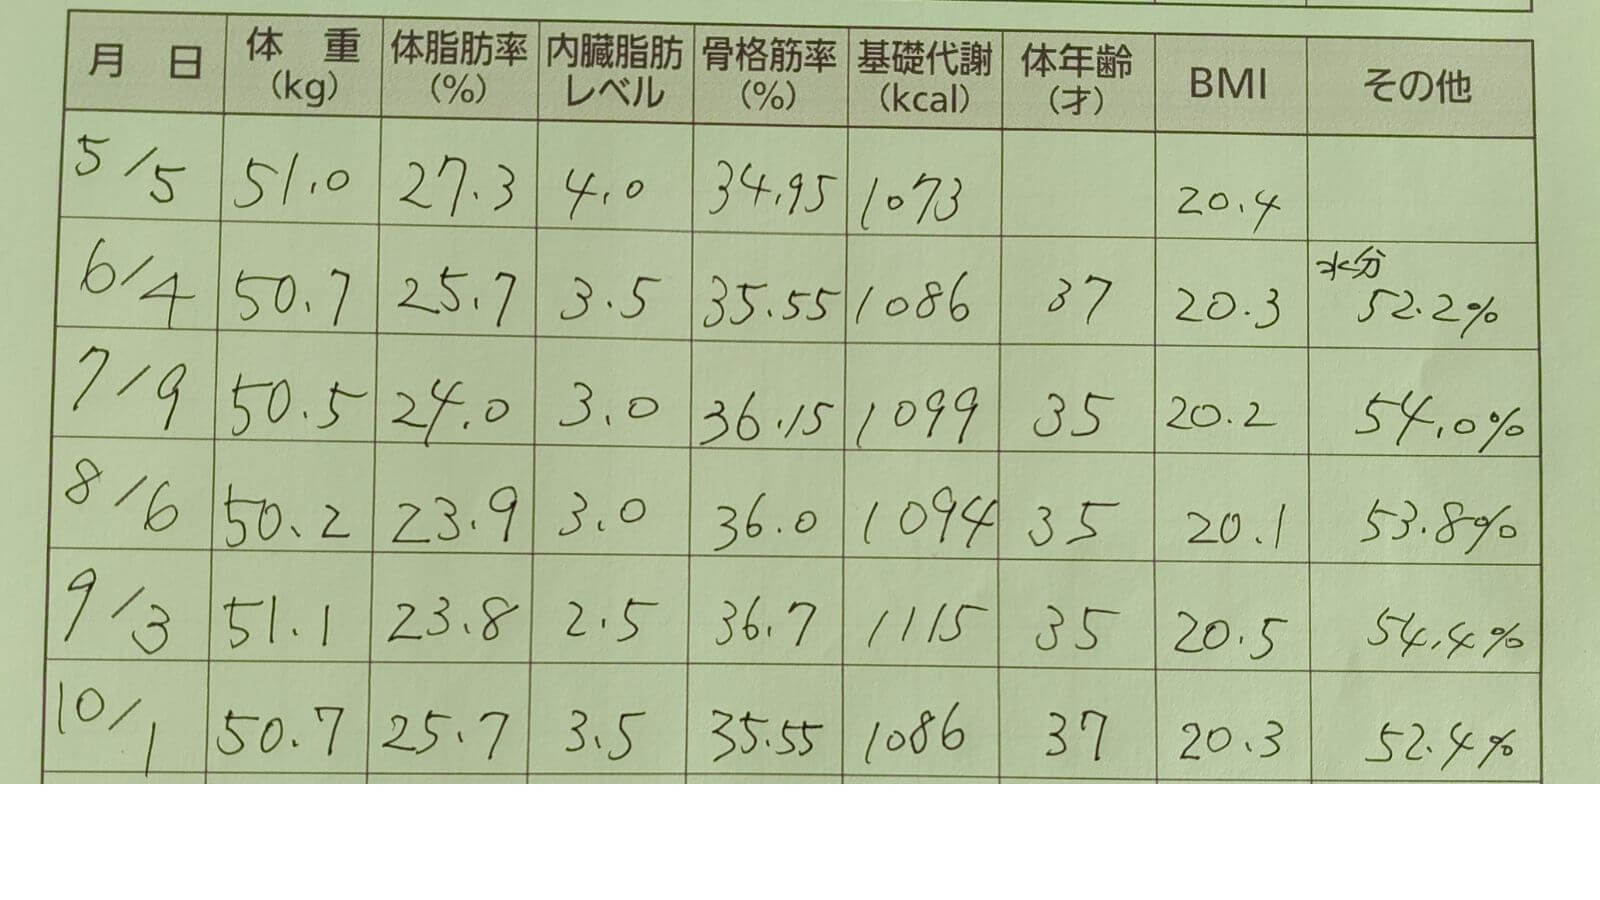 月 日 体 重 (kg) 体脂肪率 (%) 内臓脂肪 レベル 骨格筋率 (%) 基礎代謝 (kcal) 体年齢 (才) BMI その他
5/5 51.0 27.3 4.0 34.95 1073 20.4
6/4 50.7 25.7 3.5 35.55 1086 37 20.3 水分 52.2%
7/9 50.5 24.0 3.0 36.15 1099 35 20.2 54.0%
8/6 50.2 23.9 3.0 36.0 1094 35 20.1 53.8%
9/3 51.1 23.8 2.5 36.7 1115 35 20.5 54.4%
10/1 50.7 25.7 3.5 35.55 1086 37 20.3 52.4%